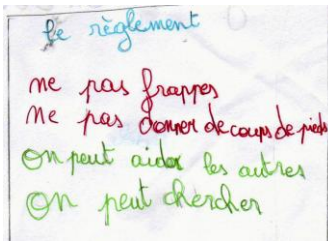 le règlement
ne pas frapper
Ne pas donner de coups de pieds
on peut aider les autres
On peut chercher